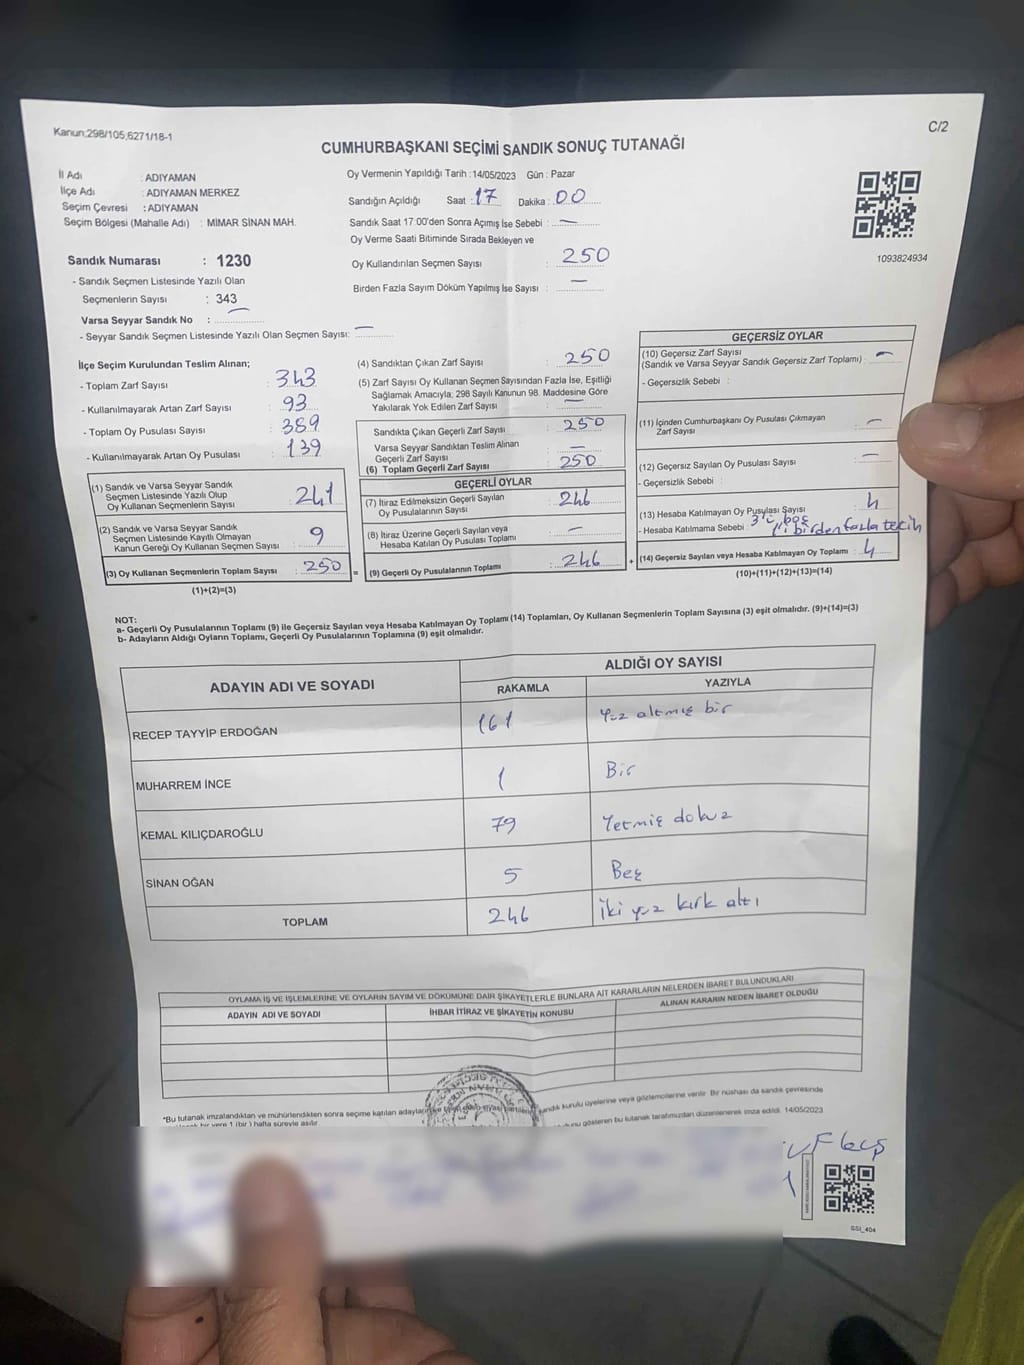 Kanun;298/105,6271/18-1
C/2
CUMHURBAŞKANI SEÇİMİ SANDIK SONUÇ TUTANAĞI
İl Adı : ADIYAMAN
İlçe Adı : ADIYAMAN MERKEZ
Seçim Çevresi : ADIYAMAN
Seçim Bölgesi (Mahalle Adı) : MİMAR SİNAN MAH.
Sandık Numarası : 1230
- Sandık Seçmen Listesinde Yazılı Olan
Seçmenlerin Sayısı : 343
Varsa Seyyar Sandık No :
- Seyyar Sandık Seçmen Listesinde Yazılı Olan Seçmen Sayısı:
Oy Vermenin Yapıldığı Tarih :14/05/2023 Gün : Pazar
Sandığın Açıldığı Saat : 17 Dakika : 00
Sandık Saat 17:00'den Sonra Açımış İse Sebebi : —
Oy Verme Saati Bitiminde Sırada Bekleyen ve
Oy Kullandırılan Seçmen Sayısı : 250
Birden Fazla Sayım Döküm Yapılmış İse Sayısı : —
1093824934
İlçe Seçim Kurulundan Teslim Alınan;
- Toplam Zarf Sayısı : 343
- Kullanılmayarak Artan Zarf Sayısı : 93
- Toplam Oy Pusulası Sayısı : 389
- Kullanılmayarak Artan Oy Pusulası : 139
(1) Sandık ve Varsa Seyyar Sandık
Seçmen Listesinde Yazılı Olup
Oy Kullanan Seçmenlerin Sayısı : 241
(2) Sandık ve Varsa Seyyar Sandık
Seçmen Listesinde Kayıtlı Olmayan
Kanun Gereği Oy Kullanan Seçmen Sayısı : 9
(3) Oy Kullanan Seçmenlerin Toplam Sayısı : 250
(1)+(2)=(3)
(4) Sandıktan Çıkan Zarf Sayısı : 250
(5) Zarf Sayısı Oy Kullanan Seçmen Sayısından Fazla İse, Eşitliği
Sağlamak Amacıyla, 298 Sayılı Kanunun 98. Maddesine Göre
Yakılarak Yok Edilen Zarf Sayısı : —
Sandıkta Çıkan Geçerli Zarf Sayısı : 250
Varsa Seyyar Sandıktan Teslim Alınan
Geçerli Zarf Sayısı : —
(6) Toplam Geçerli Zarf Sayısı : 250
GEÇERLİ OYLAR
(7) İtiraz Edilmeksizin Geçerli Sayılan
Oy Pusulalarının Sayısı : 246
(8) İtiraz Üzerine Geçerli Sayılan veya
Hesaba Katılan Oy Pusulası Toplamı : —
= (9) Geçerli Oy Pusulalarının Toplamı : 246
GEÇERSİZ OYLAR
(10) Geçersiz Zarf Sayısı
(Sandık ve Varsa Seyyar Sandık Geçersiz Zarf Toplamı) : —
- Geçersizlik Sebebi :
(11) İçinden Cumhurbaşkanı Oy Pusulası Çıkmayan
Zarf Sayısı : —
(12) Geçersiz Sayılan Oy Pusulası Sayısı : —
- Geçersizlik Sebebi :
(13) Hesaba Katılmayan Oy Pusulası Sayısı : 4
- Hesaba Katılmama Sebebi 3'ü boş
1'i birden fazla tercih
+ (14) Geçersiz Sayılan veya Hesaba Katılmayan Oy Toplamı : 4
(10)+(11)+(12)+(13)=(14)
NOT:
a- Geçerli Oy Pusulalarının Toplamı (9) ile Geçersiz Sayılan veya Hesaba Katılmayan Oy Toplamı (14) Toplamları, Oy Kullanan Seçmenlerin Toplam Sayısına (3) eşit olmalıdır. (9)+(14)=(3)
b- Adayların Aldığı Oyların Toplamı, Geçerli Oy Pusulalarının Toplamına (9) eşit olmalıdır.
ADAYIN ADI VE SOYADI ALDIĞI OY SAYISI
RAKAMLA YAZIYLA
RECEP TAYYİP ERDOĞAN 161 Yüz altmış bir
MUHARREM İNCE 1 Bir
KEMAL KILIÇDAROĞLU 79 Yetmiş dokuz
SİNAN OĞAN 5 Beş
TOPLAM 246 İki yüz kırk altı
OYLAMA İŞ VE İŞLEMLERİNE VE OYLARIN SAYIM VE DÖKÜMÜNE DAİR ŞİKAYETLERLE BUNLARA AİT KARARLARIN NELERDEN İBARET BULUNDUKLARI
ADAYIN ADI VE SOYADI İHBAR İTİRAZ VE ŞİKAYETİN KONUSU ALINAN KARARIN NEDEN İBARET OLDUĞU
*Bu tutanak imzalandıktan ve mühürlendikten sonra seçime katılan sandık kurulu üyelerine veya gözlemcilerine verilir. Bir nüshası da sandık çevresinde
1 (bir) hafta süreyle asılır. gösteren bu tutanak tarafımızdan düzenlenerek imza edildi. 14/05/2023
GSI_404